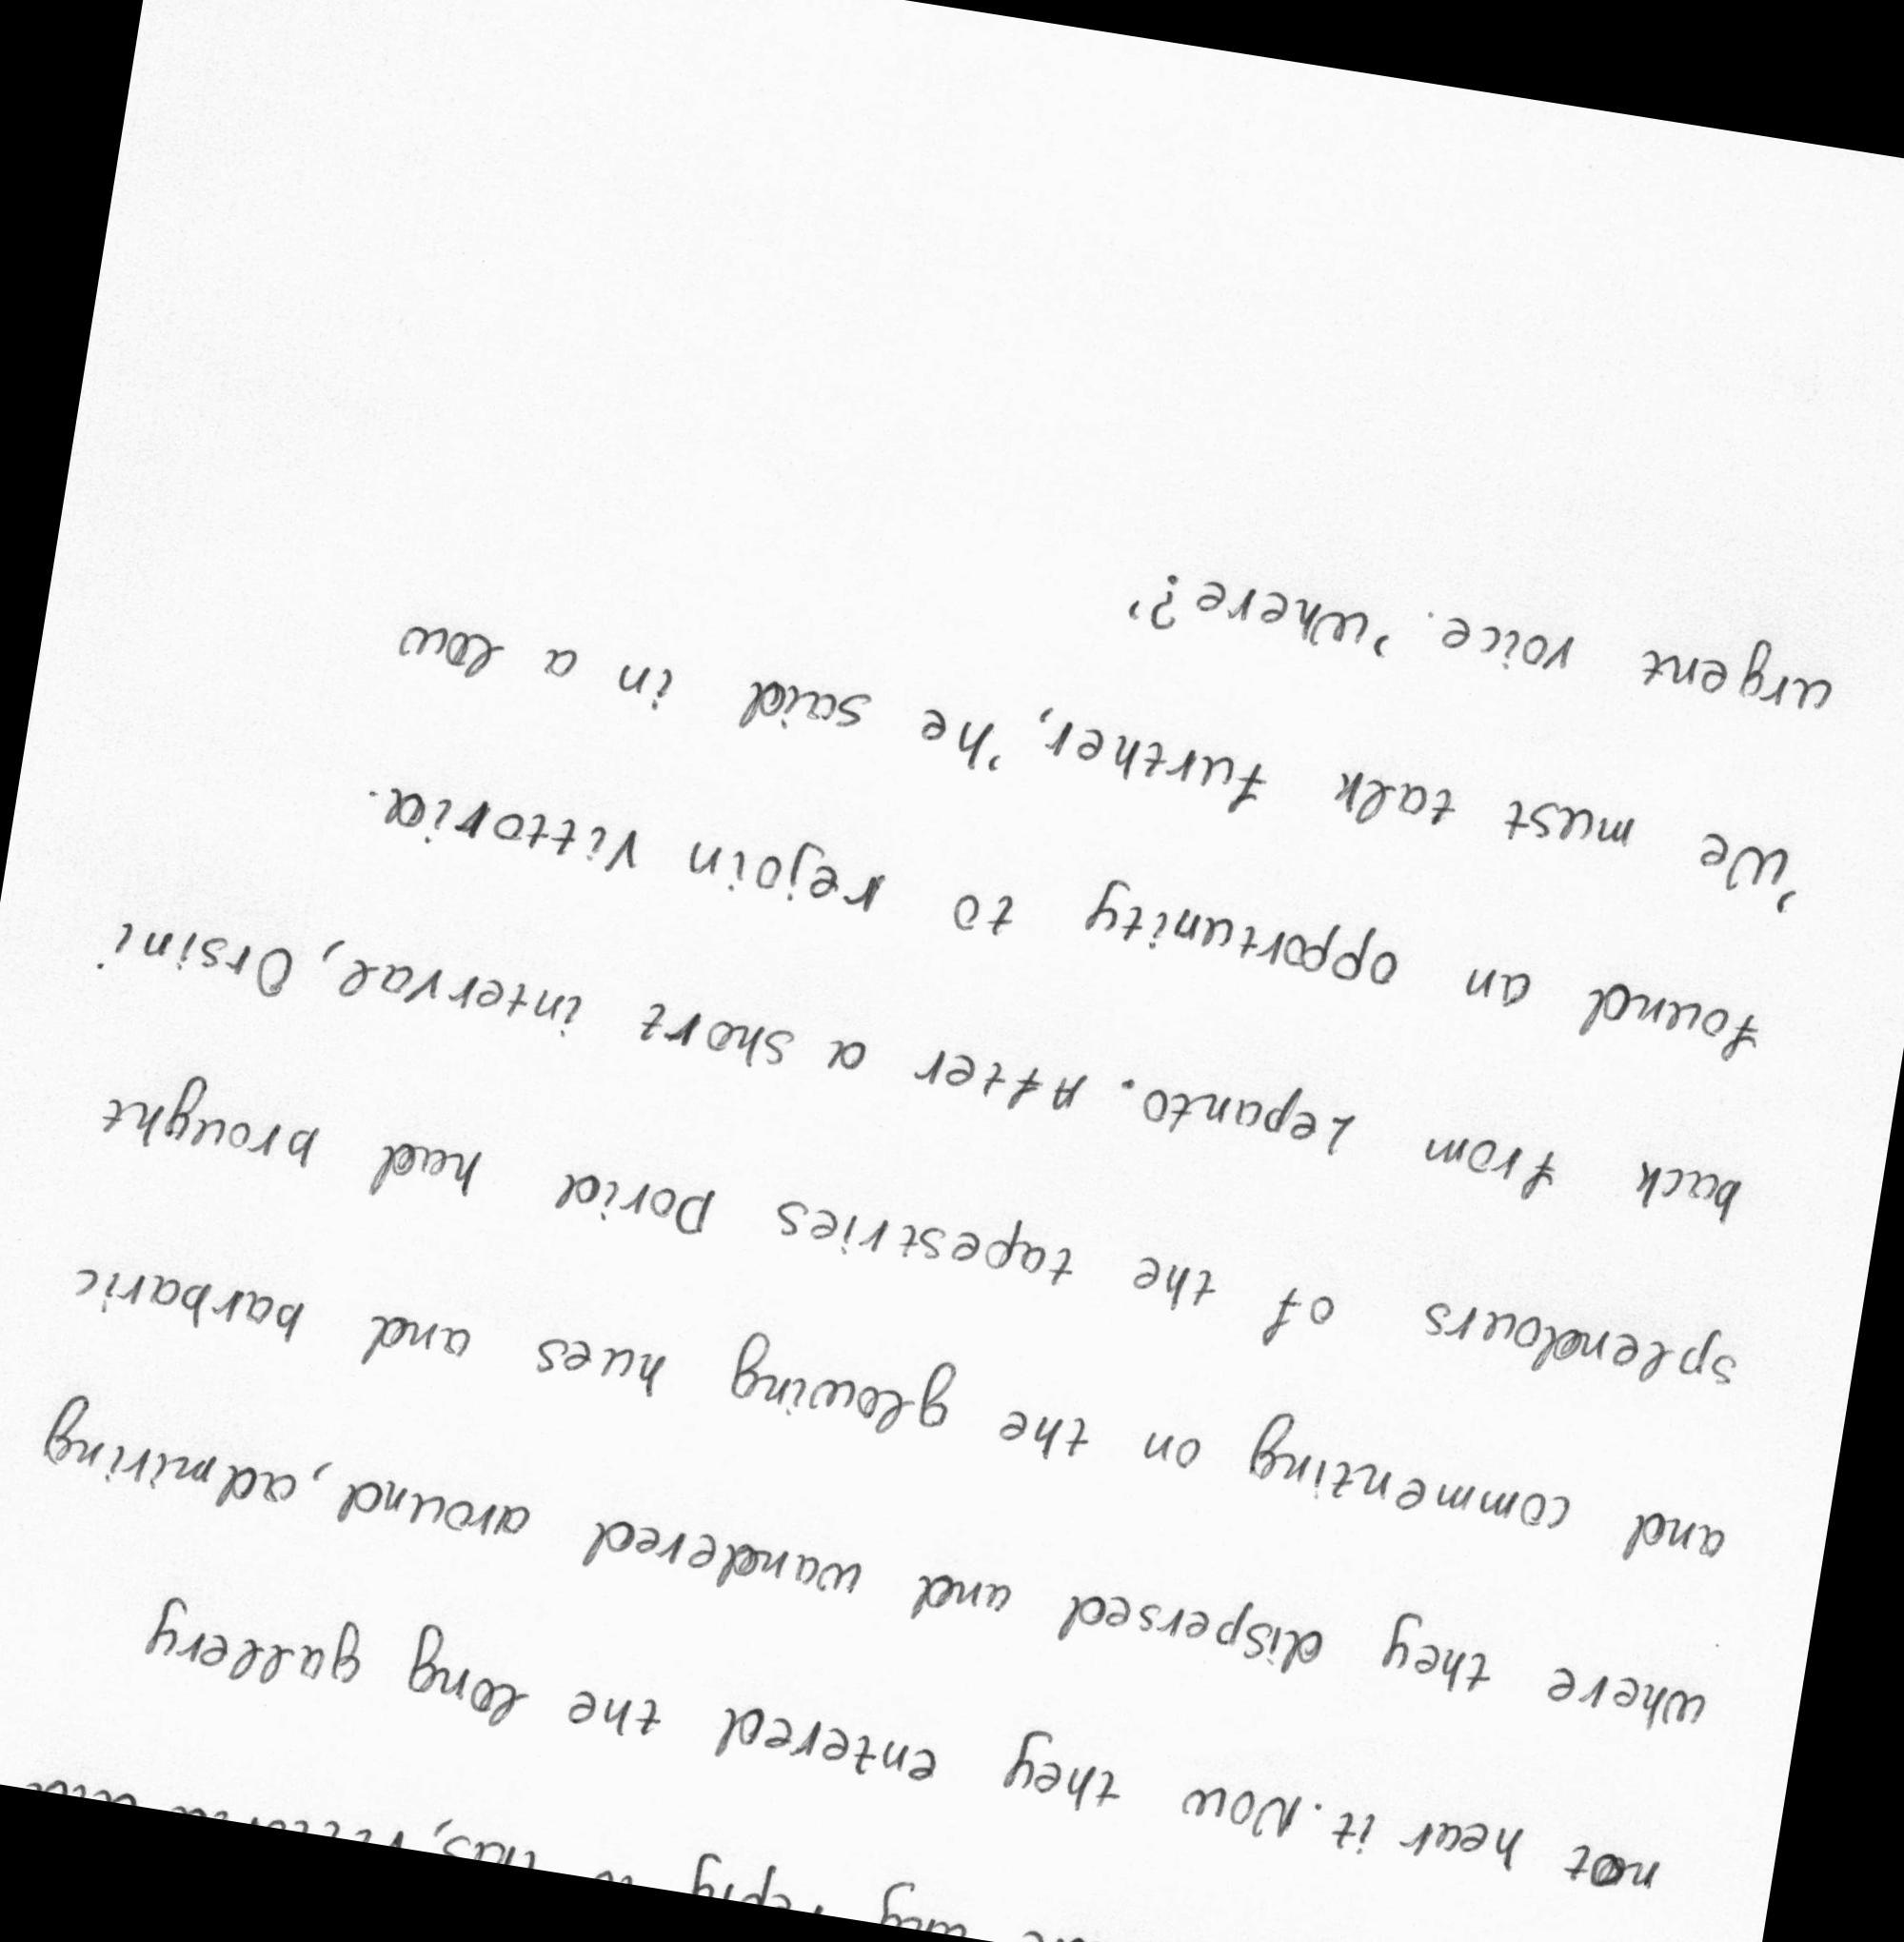 any reply to this, Vittoria did
not hear it. Now they entered the long gallery
where they dispersed and wandered around, admiring
and commenting on the glowing hues and barbaric
splendours of the tapestries Doria had brought
back from Lepanto. After a short interval, Orsini
found an opportunity to rejoin Vittoria.
'We must talk further,' he said in a low
urgent voice. 'Where?'